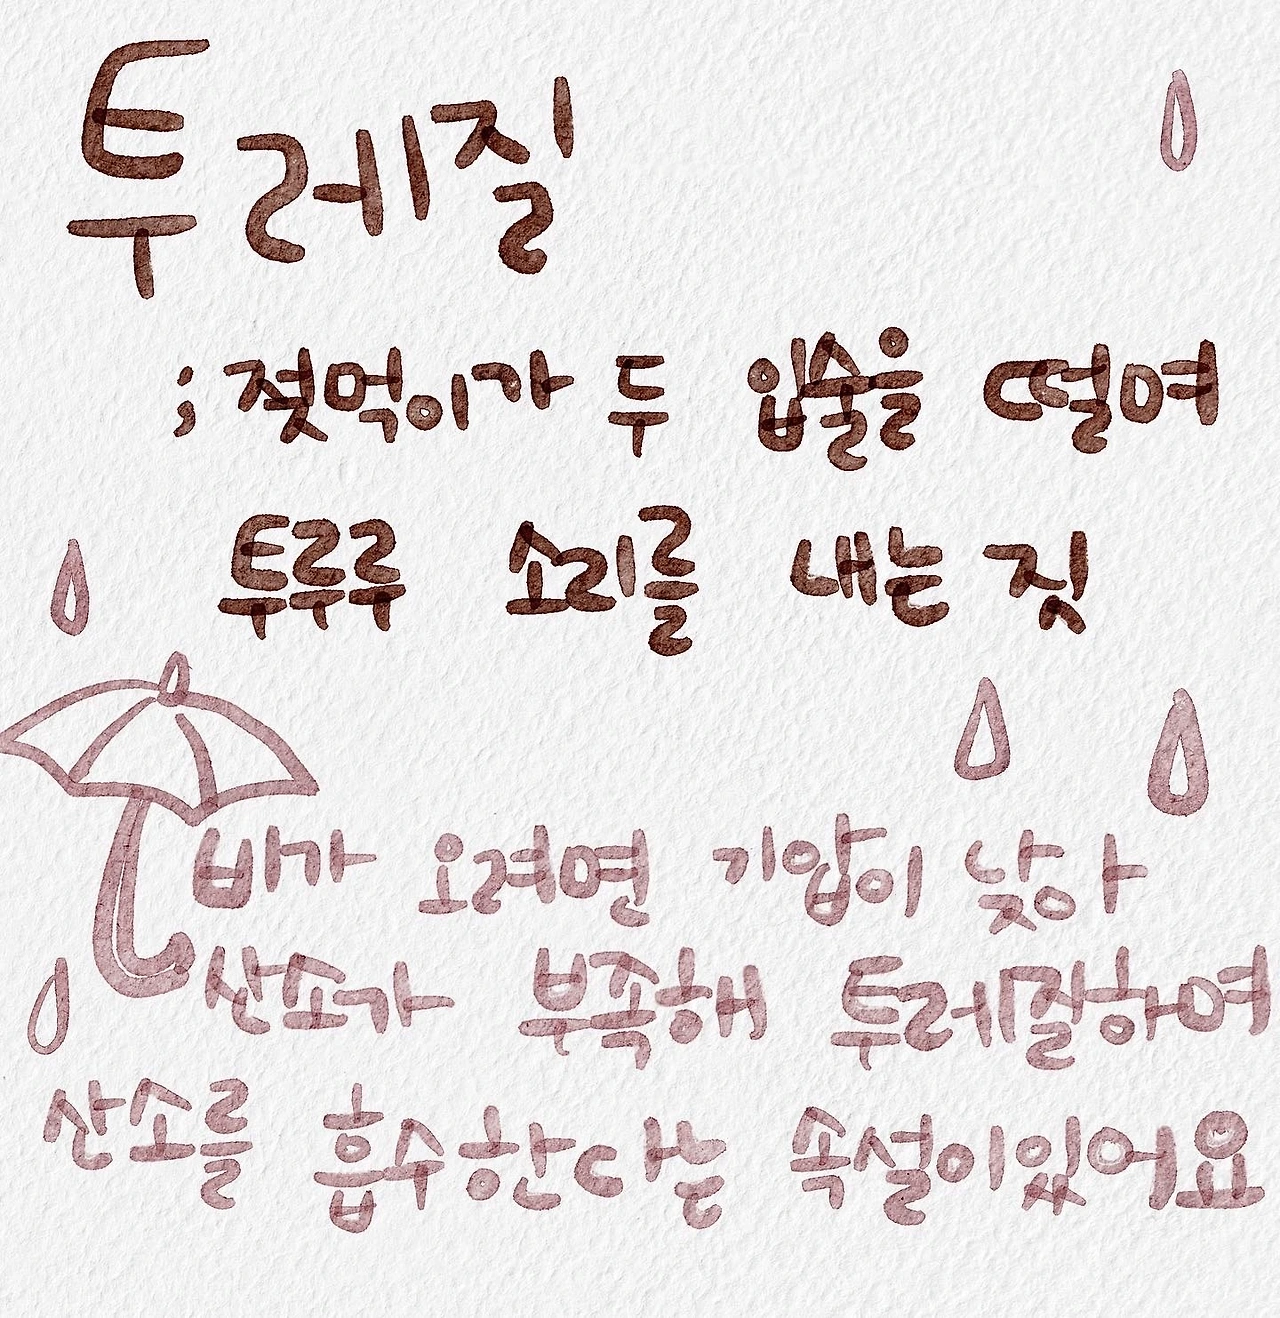 투레질
; 젖먹이가 두 입술을 떨여
투루루 소리를 내는 짓
비가 오려면 기압이 낮아
산소가 부족해 투레질하여
산소를 흡수한다는 속설이있어요